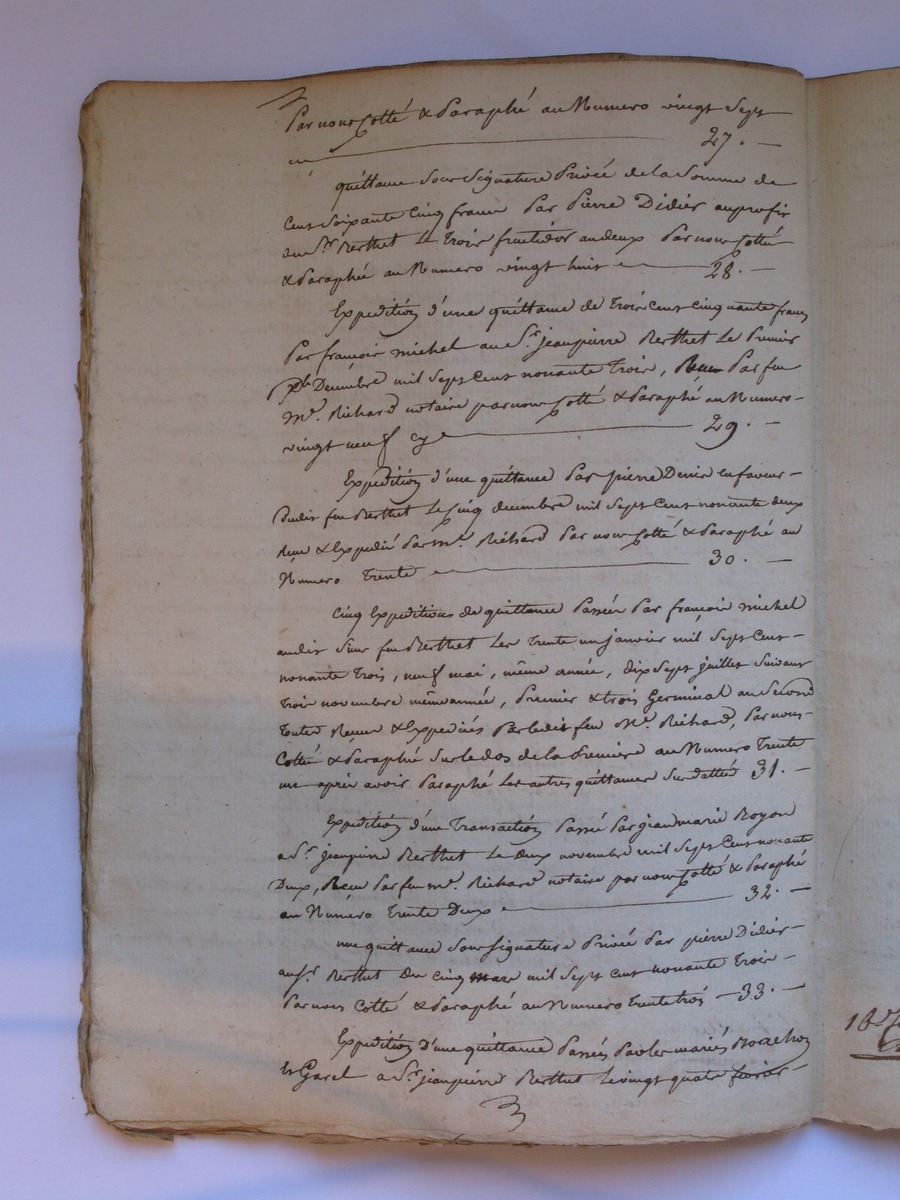 Par nous Cotté & Paraphé au Numero vingt Sept
27. —
quittance Sous Signature Privée de la Somme de
Cent Soixante Cinq francs Par Pierre Didier au profit
du Sr. Berthet Le Trois fructidor an deux Par nous Cotté
& Paraphé au Numero vingt huit — 28. —
Expedition d'une quittance de Trois cent cinquante francs
Par françois michel au Sr. jeanpierre Berthet Le Premier
Xbre Decembre mil Sept Cent nonante Trois, Recue Par feu
Me. Richard notaire par nous Cotté & Paraphé au Numero —
vingt neuf cy — 29. —
Expedition d'une quittance Par pierre Denis en faveur —
Dudit feu Berthet Le Cinq decembre mil Sept Cent nonante deux
Recue & Expedié Par Me. Richard Par nous Cotté & Paraphé au
Numero Trente — 30. —
Cinq Expeditions de quittance Passées Par françois michel
audit Sieur feu Berthet Les Trente un janvier mil Sept Cent —
nonante Trois, neuf mai, même année, dix Sept juillet Suivant
Trois novembre même année, Premier & trois Germinal an Second
Toutes Recues & Expediés Par ledit feu Me. Richard, Par nous —
Cotté & Paraphé Sur le dos de la Premiere au Numero Trente
un après avoir Paraphé Les autres quittances Sus dattées 31. —
Expedition d'une Transaction Passée Par jean marie Royon
a Sr. jeanpierre Berthet Le deux novembre mil Sept Cent nonante
Deux, Recue Par feu me. Richard notaire par nous Cotté & Paraphé
au Numéro Trente Deux — 32. —
une quittance Sous Signature Privée Par pierre Didier —
au Sr. Berthet Du Cinq mars mil Sept Cent nonante Trois —
Par nous Cotté & Paraphé au Numero trente trois — 33. —
Expedition D'une quittance Passées Par les mariés
et Garel a Sr. jeanpierre Berthet Le vingt quatre fevrier —